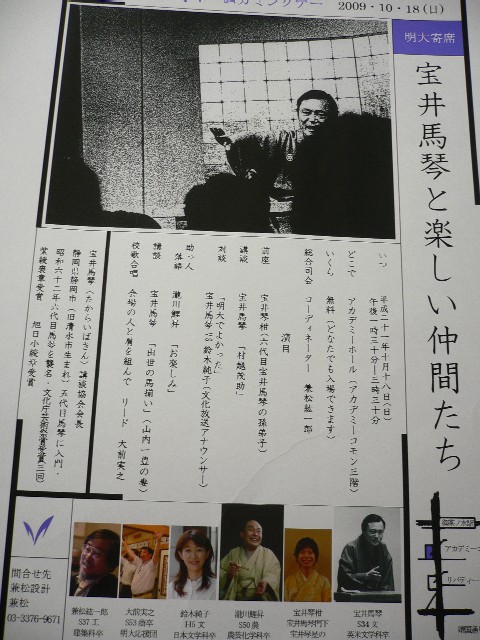 2009・10・18(日)
明大寄席
宝井馬琴と楽しい仲間たち
いつ 平成二十一年十月十八日(日)
午後一時三十分―三時三十分
どこで アカデミーホール(アカデミーコモン三階)
いくら 無料(どなたでも入場できます)
総合司会 コーディネーター 兼松紘一郎
演目
前座 宝井琴柑(六代目宝井馬琴の孫弟子)
講談 宝井馬琴 「村越茂助」
対談 「明大でよかった」
宝井馬琴 VS 鈴木純子(文化放送アナウンサー)
助っ人
落語 瀧川鯉昇 「お楽しみ」
講談 宝井馬琴 「出世の馬揃い」(山内一豊の妻)
校歌合唱 会場の人と肩を組んで リード 大前実之
宝井馬琴(たからいばきん)講談協会会長
静岡県静岡市(旧清水市生まれ)五代目馬琴に入門・
昭和六十二年六代目馬琴を襲名・文化庁芸術祭優秀賞(三回)
紫綬褒章受賞 旭日小綬章受賞
問合せ先
兼松設計
兼松
03-3376-9671
兼松紘一郎
S37 工
建築科卒
大前実之
S53 商卒
明大応援団
鈴木純子
H5 文
日本文学科卒
瀧川鯉昇
S50 農
農芸化学科卒
宝井琴柑
宝井馬琴門下
宝井琴星の
宝井馬琴
S34 文
英米文学科卒
御茶ノ水駅
アカデミーコ
リバティー